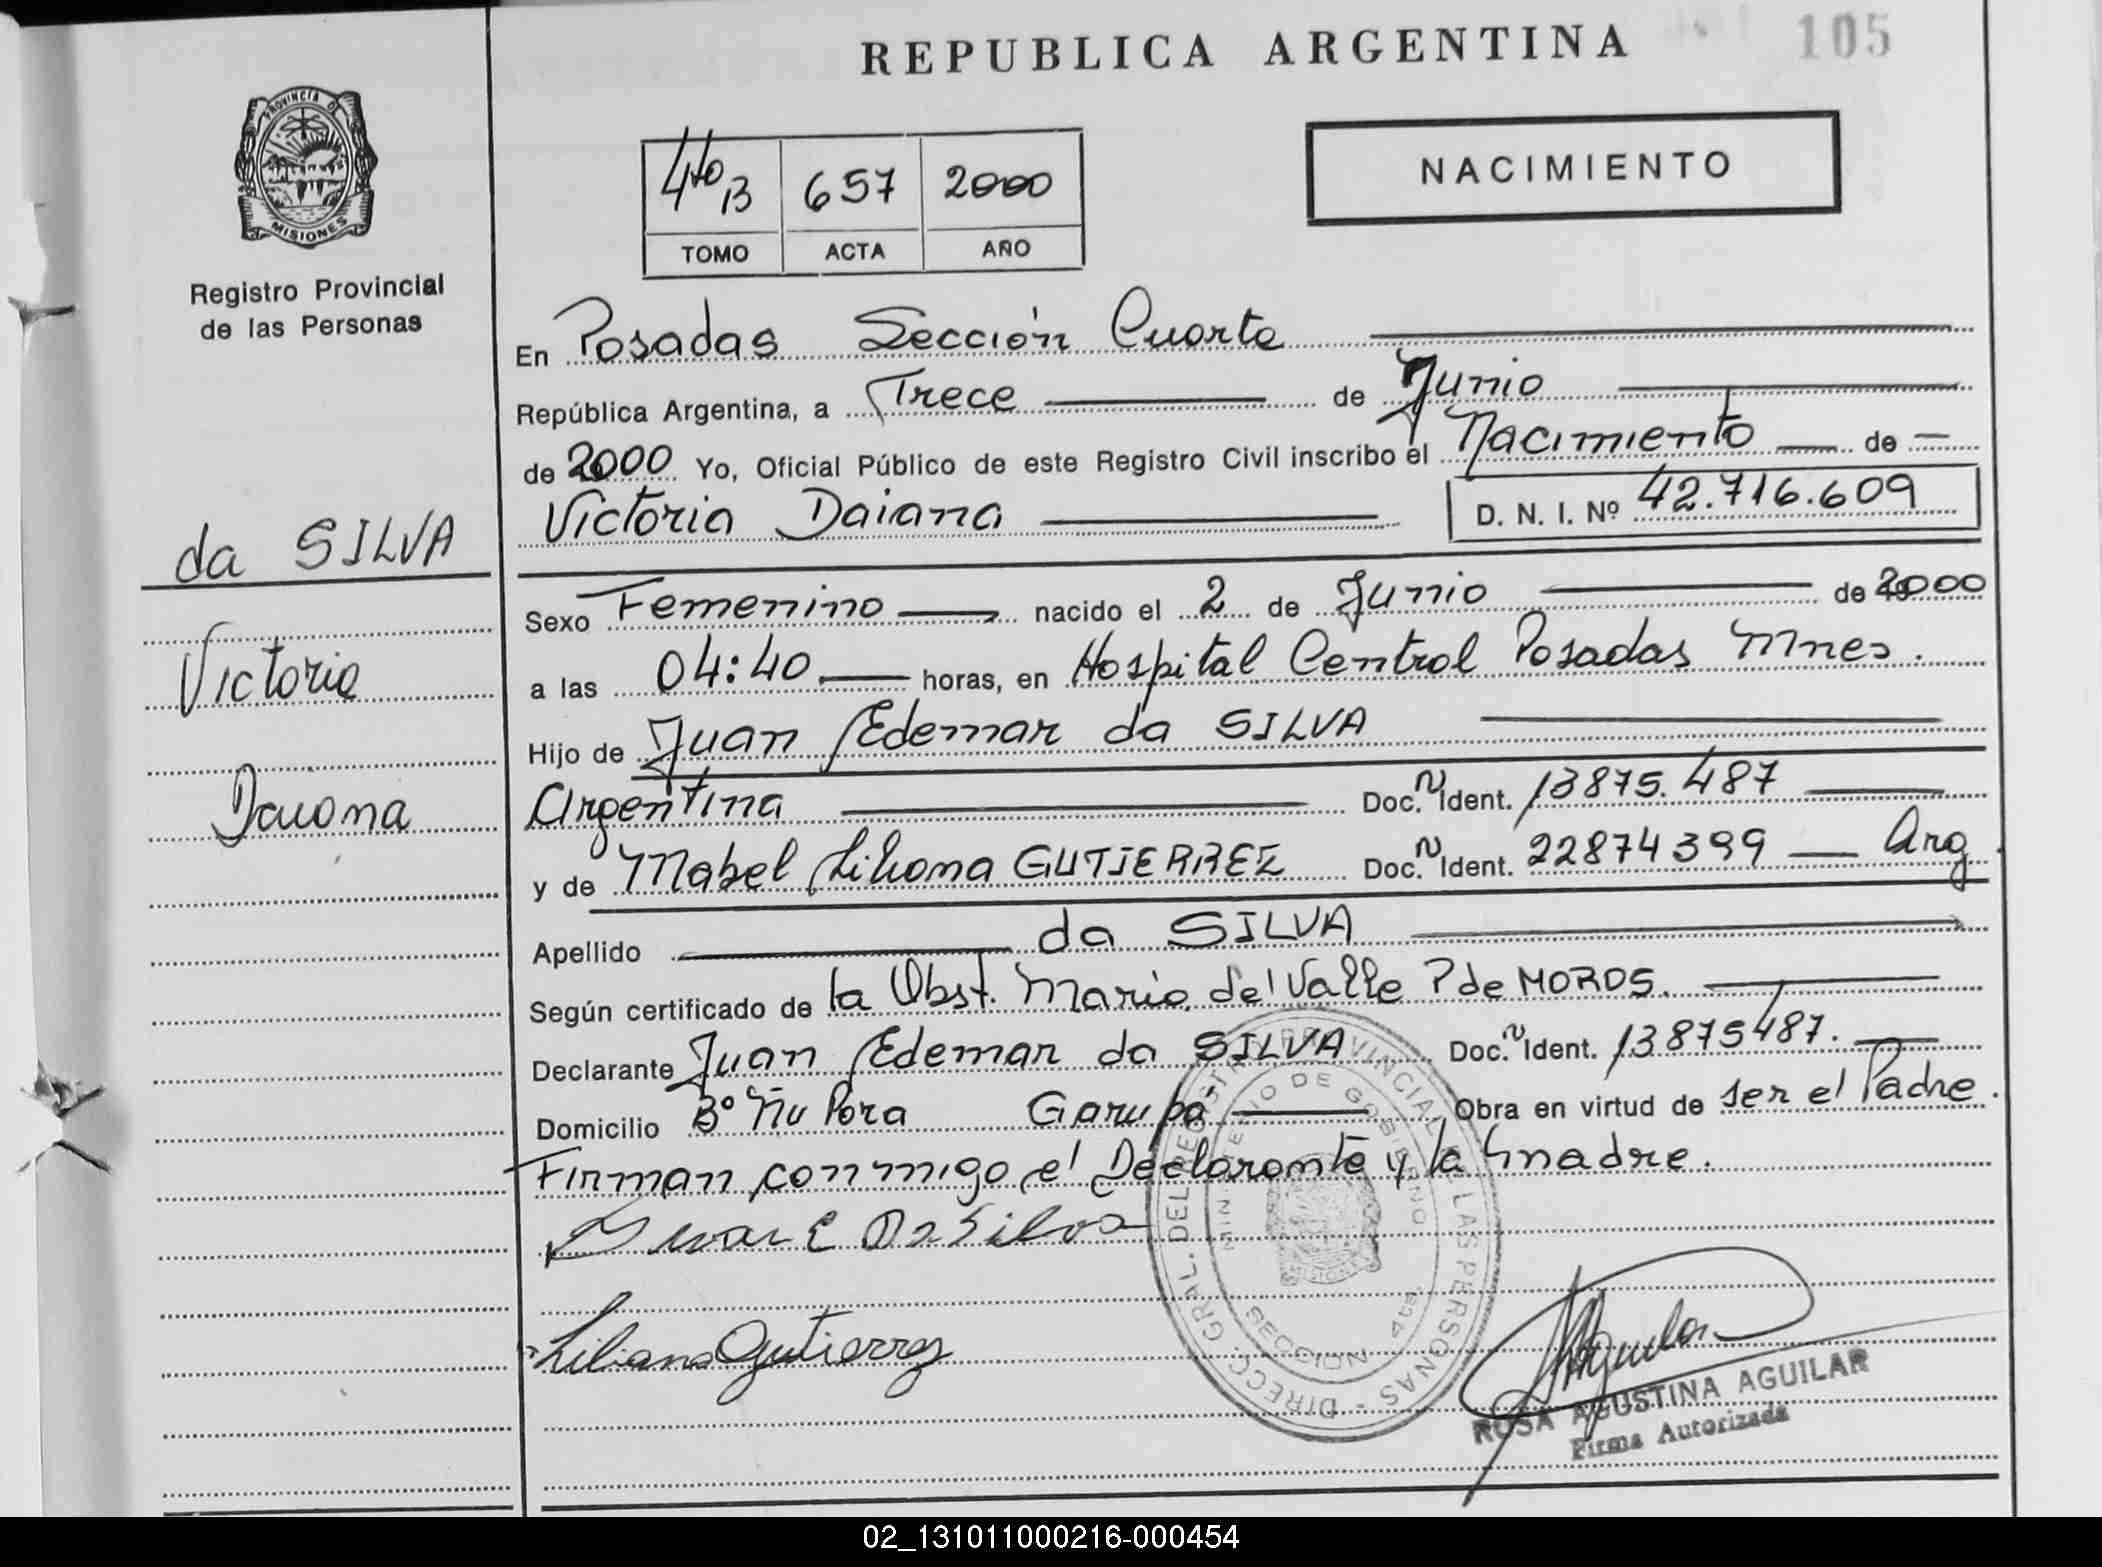 REPUBLICA ARGENTINA
105
PROVINCIA D
MISIONES
Registro Provincial
de las Personas
4to B 657 2000
TOMO ACTA AÑO
NACIMIENTO
En Posadas Sección Cuarta
República Argentina, a Trece de Junio
de 2000 Yo, Oficial Público de este Registro Civil inscribo el Nacimiento de
Victoria Daiana D. N. I. Nº 42.716.609
da SILVA
Victoria
Daiana
Sexo Femenino nacido el 2 de Junio de 2000
a las 04:40 horas, en Hospital Central Posadas Mnes.
Hijo de Juan Edemar da SILVA
Argentina Doc. N Ident. 13875.487
y de Mabel Liliana GUTIERREZ Doc. N Ident. 22874399 Arg
Apellido da SILVA
Según certificado de la Obst. Maria del Valle P de MOROS.
Declarante Juan Edemar da SILVA Doc. N Ident. 13875487.
Domicilio Bº Ñu Pora Garupá Obra en virtud de ser el Padre.
Firman conmigo el Declarante y la madre.
Juan E Da Silva
Liliana Gutierrez
DIRECC. GRAL. DEL REGISTR PROVINCIAL LAS PERSONAS
MINI ERIO DE GOBIERNO
SECCION 4ta
MISIONES
Aguilar
ROSA AGUSTINA AGUILAR
Firma Autorizada
02_131011000216-000454